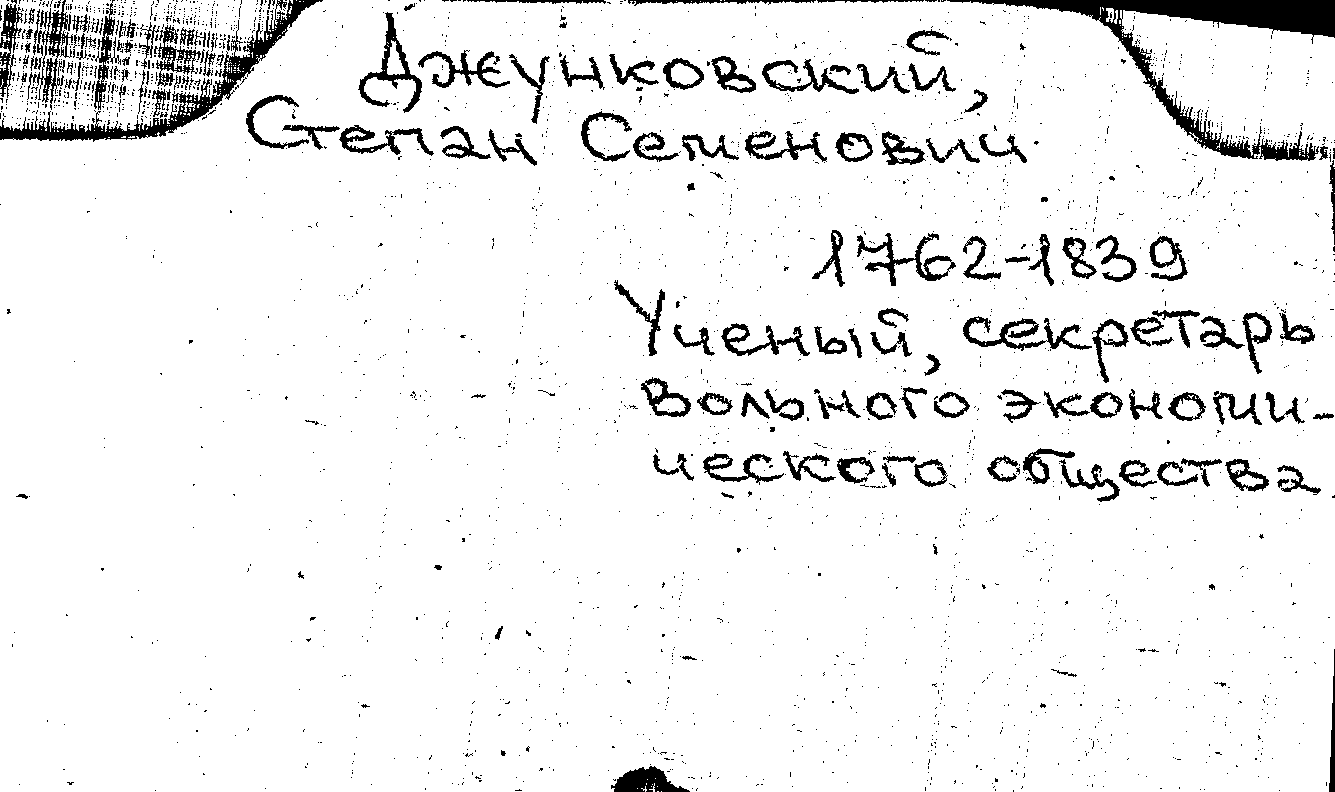 Джунковский,
Степан Семенович
1762-1839
Ученый, секретарь
Вольного экономи-
ческого общества